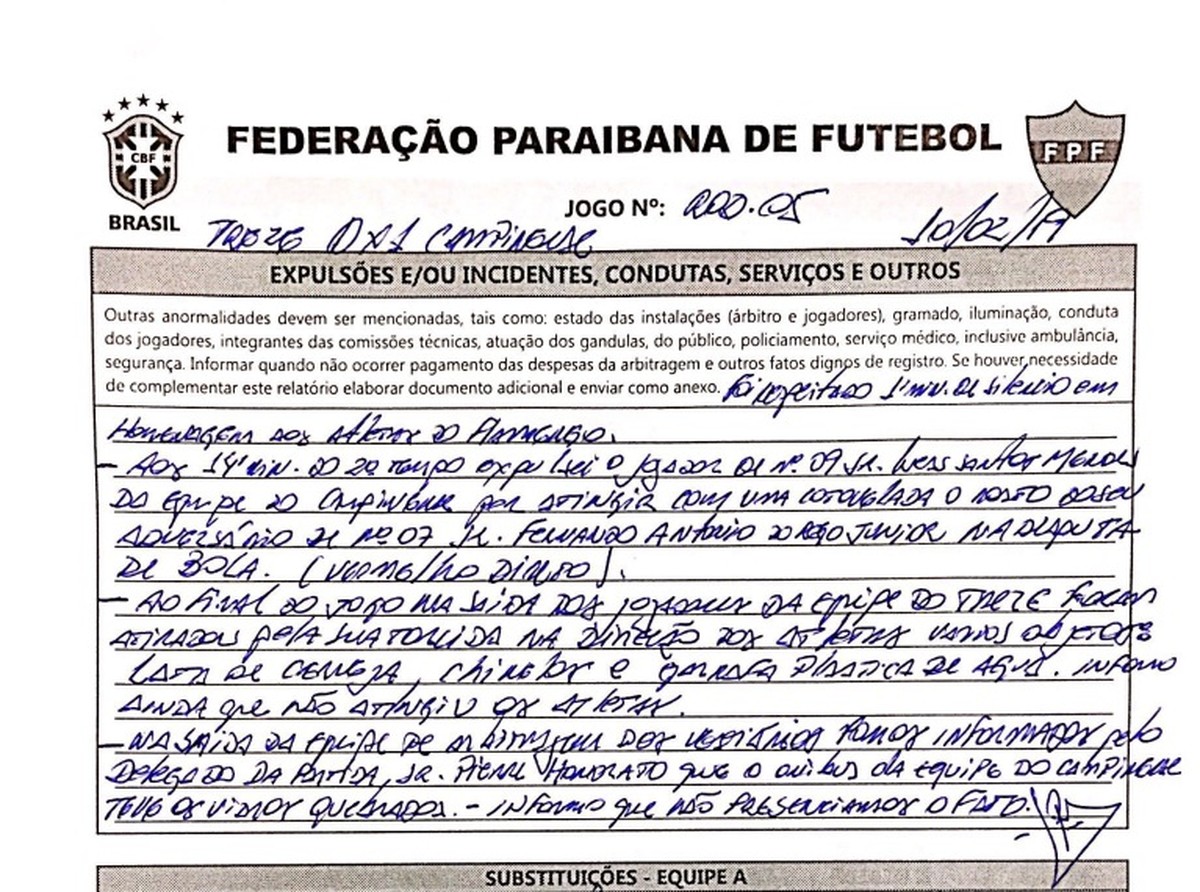 CBF
BRASIL
FEDERAÇÃO PARAIBANA DE FUTEBOL
FPF
JOGO Nº: 05
10/02/19
TREZE 0x1 CAMPINENSE
EXPULSÕES E/OU INCIDENTES, CONDUTAS, SERVIÇOS E OUTROS
Outras anormalidades devem ser mencionadas, tais como: estado das instalações (árbitro e jogadores), gramado, iluminação, conduta
dos jogadores, integrantes das comissões técnicas, atuação dos gandulas, do público, policiamento, serviço médico, inclusive ambulância,
segurança. Informar quando não ocorrer pagamento das despesas da arbitragem e outros fatos dignos de registro. Se houver necessidade
de complementar este relatório elaborar documento adicional e enviar como anexo. Foi respeitado 1 min. de silêncio em
Homenagem aos atletas do Flamengo.
- Aos 14 min. do 2º tempo expulsei o jogador de nº 09 Sr. Santos
da equipe do Campinense por atingir com uma cotovelada o rosto do seu
adversário de nº 07 Sr. Fernando Antonio do Rego Junior na disputa
de BOLA. (vermelho direto).
- Ao final do jogo na saída dos jogadores da equipe do Treze foram
atirados pela sua torcida na direção dos atletas varios objetos
Lata de cerveja, chinelos e garrafa plástica de agua. informo
ainda que não atingiu os atletas.
- Na saída da equipe de arbitragem dos vestiários fomos informados pelo
Delegado da Partida, Sr. Honorato que o onibus da equipe do Campinense
teve os vidros quebrados. - informo que não presenciamos o fato.
SUBSTITUIÇÕES - EQUIPE A